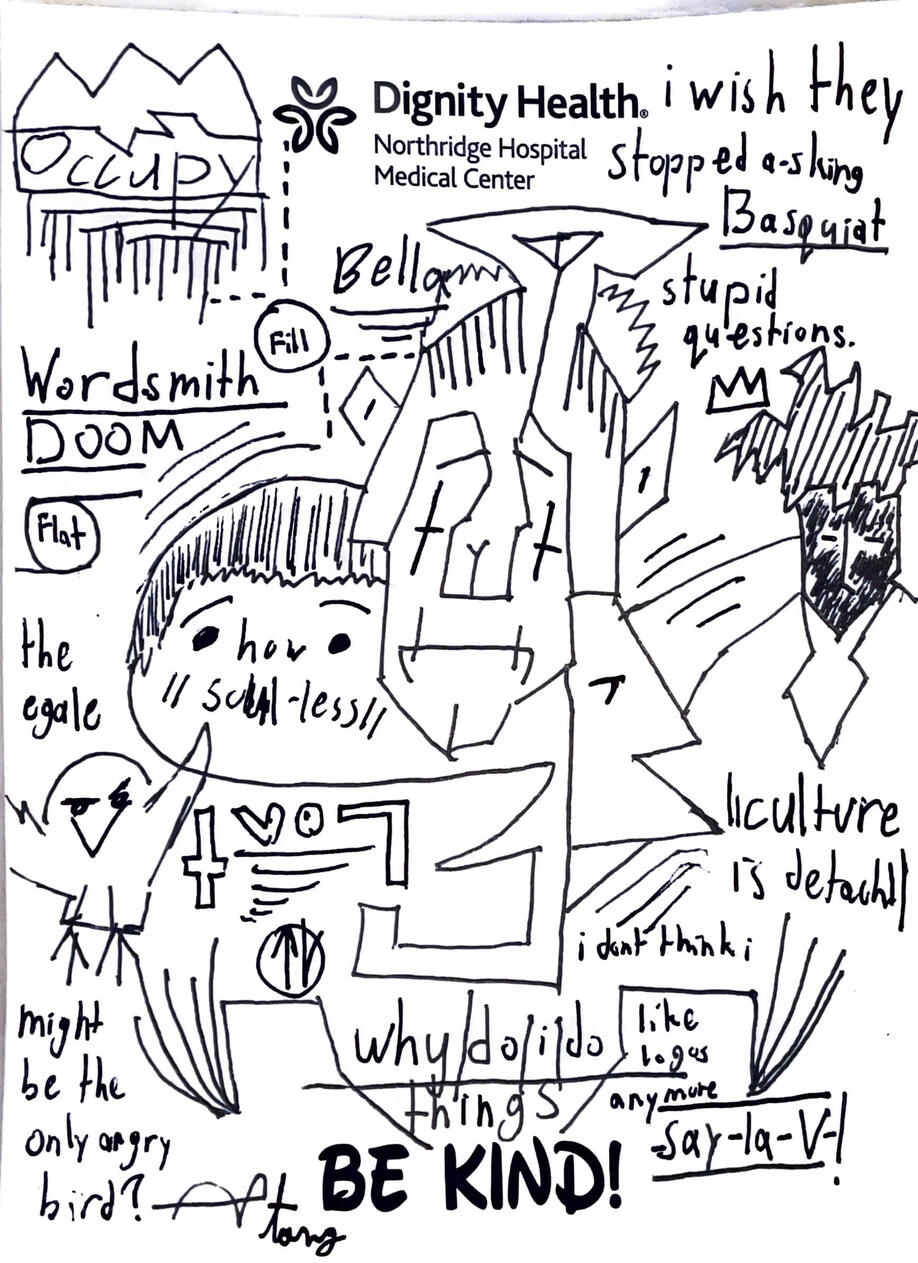 Occupy
Dignity Health®
Northridge Hospital
Medical Center
i wish they
stopped a-sking
Basquiat
stupid
questions.
Bella
Fill
Wordsmith
DOOM
Flat
the
egale
how
// soul-less//
liculture
is detach||
i dont think i
like
logos
anymore
say-la-V-!
why/do/i/do
things
might
be the
only angry
bird?
tang
BE KIND!